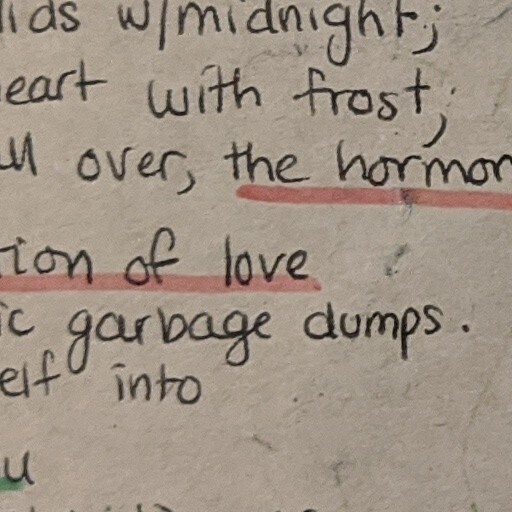 lids w/midnight;
eart with frost;
ll over, the hormon
tion of love
ic garbage dumps.
elf into
u